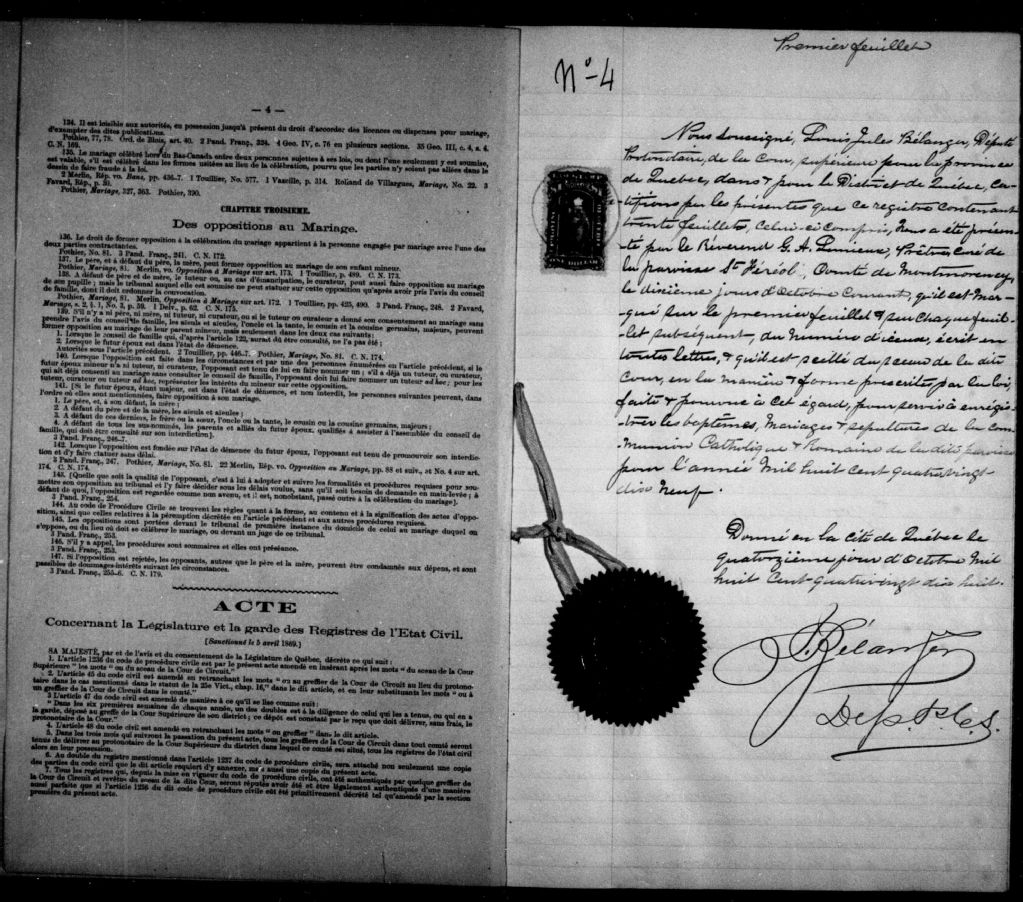 — 4 —
134. Il est loisible aux autorités, en possession jusqu'à présent du droit d'accorder des licences ou dispenses pour mariage,
d'exempter des dites publications.
Pothier, 77, 78. Ord. de Blois, art. 40. 2 Pand. Franç., 324. 4 Geo. IV, c. 76 en plusieurs sections. 35 Geo. III, c. 4, s. 4.
C. N. 169.
135. Le mariage célébré hors du Bas-Canada entre deux personnes sujettes à ses lois, ou dont l'une seulement y est soumise,
est valable, s'il est célébré dans les formes usitées au lieu de la célébration, pourvu que les parties n'y soient pas allées dans le
dessein de faire fraude à la loi.
2 Merlin, Rép. vo. Bans, pp. 436-7. 1 Touillier, No. 577. 1 Vazeille, p. 314. Rolland de Villargues, Mariage, No. 22. 3
Favard, Rép., p. 50.
Pothier, Mariage, 327, 363. Pothier, 390.
CHAPITRE TROISIEME.
Des oppositions au Mariage.
136. Le droit de former opposition à la célébration du mariage appartient à la personne engagée par mariage avec l'une des
deux parties contractantes.
Pothier, No. 81. 3 Pand. Franç., 241. C. N. 172.
137. Le père, et à défaut du père, la mère, peut former opposition au mariage de son enfant mineur.
Pothier, Mariage, 81. Merlin, vo. Opposition à Mariage sur art. 173. 1 Touillier, p. 489. C. N. 173.
138. A défaut de père et de mère, le tuteur ou, au cas d'émancipation, le curateur, peut aussi faire opposition au mariage
de son pupille; mais le tribunal auquel elle est soumise ne peut statuer sur cette opposition qu'après avoir pris l'avis du conseil
de famille, dont il doit ordonner la convocation.
Pothier, Mariage, 81. Merlin, Opposition à Mariage sur art. 172. 1 Touillier, pp. 425, 490. 3 Pand. Franç., 248. 2 Favard,
Mariage, s. 2, § 1, No. 3, p. 59. 1 Delv., p. 62. C. N. 175.
139. S'il n'y a ni père, ni mère, ni tuteur, ni curateur, ou si le tuteur ou curateur a donné son consentement au mariage sans
prendre l'avis du conseil de famille, les aïeuls et aïeules, l'oncle et la tante, le cousin et la cousine germains, majeurs, peuvent
former opposition au mariage de leur parent mineur, mais seulement dans les deux cas suivants:
1. Lorsque le conseil de famille qui, d'après l'article 122, aurait dû être consulté, ne l'a pas été;
2. Lorsque le futur époux est dans l'état de démence.
Autorités sous l'article précédent. 2 Touillier, pp. 446-7. Pothier, Mariage, No. 81. C. N. 174.
140. Lorsque l'opposition est faite dans les circonstances et par une des personnes énumérées en l'article précédent, si le
futur époux mineur n'a ni tuteur, ni curateur, l'opposant est tenu de lui en faire nommer un; s'il a déjà un tuteur, ou curateur,
qui ait déjà consenti au mariage sans consulter le conseil de famille, l'opposant doit lui faire nommer un tuteur ad hoc; pour les
tuteur, curateur ou tuteur ad hoc, représenter les intérêts du mineur sur cette opposition.
141. [Si le futur époux, étant majeur, est dans l'état de démence, et non interdit, les personnes suivantes peuvent, dans
l'ordre où elles sont mentionnées, faire opposition à son mariage.
1. Le père, et, à son défaut, la mère;
2. A défaut du père et de la mère, les aïeuls et aïeules;
3. A défaut de ces derniers, le frère ou la sœur, l'oncle ou la tante, le cousin ou la cousine germains, majeurs;
4. A défaut de tous les sus-nommés, les parents et alliés du futur époux, qualifiés à assister à l'assemblée du conseil de
famille, qui doit être consulté sur son interdiction].
3 Pand. Franç., 246-7.
142. Lorsque l'opposition est fondée sur l'état de démence du futur époux, l'opposant est tenu de promouvoir son interdic-
tion et d'y faire statuer sans délai.
3 Pand. Franç., 247. Pothier, Mariage, No. 81. 22 Merlin, Rép. vo. Opposition au Mariage, pp. 88 et suiv., et No. 4 sur art.
174. C. N. 174.
143. [Quelle que soit la qualité de l'opposant, c'est à lui à adopter et suivre les formalités et procédures requises pour sou-
mettre son opposition au tribunal et l'y faire décider sous les délais voulus, sans qu'il soit besoin de demande en main-levée; à
défaut de quoi, l'opposition est regardée comme non avenu, et il est, nonobstant, passé outre à la célébration du mariage].
3 Pand. Franç., 254.
144. Au code de Procédure Civile se trouvent les règles quant à la forme, au contenu et à la signification des actes d'oppo-
sition, ainsi que celles relatives à la péremption décrétée en l'article précédent et aux autres procédures requises.
145. Les oppositions sont portées devant le tribunal de première instance du domicile de celui au mariage duquel on
s'oppose, ou du lieu où doit se célébrer le mariage, ou devant un juge de ce tribunal.
3 Pand. Franç., 253.
146. S'il y a appel, les procédures sont sommaires et elles ont préséance.
3 Pand. Franç., 253.
147. Si l'opposition est rejetée, les opposants, autres que le père et la mère, peuvent être condamnés aux dépens, et sont
passibles de dommages-intérêts suivant les circonstances.
3 Pand. Franç., 255-6. C. N. 179.
ACTE
Concernant la Législature et la garde des Registres de l'Etat Civil.
[Sanctionné le 5 avril 1869.]
SA MAJESTÉ, par et de l'avis et du consentement de la Législature de Québec, décrète ce qui suit:
1. L'article 1236 du code de procédure civile est par le présent acte amendé en insérant après les mots "du sceau de la Cour
Supérieure" les mots "ou du sceau de la Cour de Circuit."
2. L'article 45 du code civil est amendé en retranchant les mots "ou au greffier de la Cour de Circuit au lieu du protono-
taire dans le cas mentionné dans le statut de la 25e Vict., chap. 16," dans le dit article, et en leur substituants les mots "ou à
un greffier de la Cour de Circuit dans le comté."
3 L'article 47 du code civil est amendé de manière à ce qu'il se lise comme suit:
"Dans les six premières semaines de chaque année, un des doubles est à la diligence de celui qui les a tenus, ou qui en a
la garde, déposé au greffe de la Cour Supérieure de son district; ce dépôt est constaté par le reçu que doit délivrer, sans frais, le
protonotaire de la Cour."
4. L'article 48 du code civil est amendé en retranchant les mots "ou greffier" dans le dit article.
5. Dans les trois mois qui suivront la passation du présent acte, tous les greffiers de la Cour de Circuit dans tout comté seront
tenus de délivrer au protonotaire de la Cour Supérieure du district dans lequel ce comté est situé, tous les registres de l'état civil
alors en leur possession.
6. Au double du registre mentionné dans l'article 1237 du code de procédure civile, sera attaché non seulement une copie
des parties du code civil que le dit article requiert d'y annexer, mais aussi une copie du présent acte.
7. Tous les registres qui, depuis la mise en vigueur du code de procédure civile, ont été authentiqués par quelque greffier de
la Cour de Circuit et revêtus du sceau de la dite Cour, seront réputés avoir été et être légalement authentiqués d'une manière
aussi parfaite que si l'article 1236 du dit code de procédure civile eût été primitivement décrété tel qu'amendé par la section
première du présent acte.
Premier feuillet
No-4
Nous soussigné, Louis Jules Bélanger, Député
Protonotaire, de la Cour, supérieure pour la province
de Quebec, dans & pour le District de Québec, Ce-
tifions par les présentes que ce registre contenant
trente feuillets, Celui-ci Compris, Nous a été présen-
té par le Réverend G. A. Lemieux, Prêtre, Curé de
la paroisse St Féréol, Comté de Montmorency,
le dixième jours d'Octobre Courant, qu'il est Mar-
qué sur le premier feuillet & sur chaque feuil-
let subséquent, du Numéro d'iceux, écrit en
toutes lettres, & qu'il est scellé du sceau de la dite
Cour, en la Manière & forme prescrite par la loi,
faite & pourvue à Cet égard, pour servir à enrégis-
trer les baptêmes, Mariages & sépultures de la Com-
munion Catholique & Romaine de la dite paroisse
pour l'année Mil huit Cent quatrevingt
dix Neuf.
Donné en la Cité de Québec le
quatorzième jour d'Octobre Mil
huit Cent quatrevingt dix huit.
L. J. Bélanger
Dep. P. C. S.